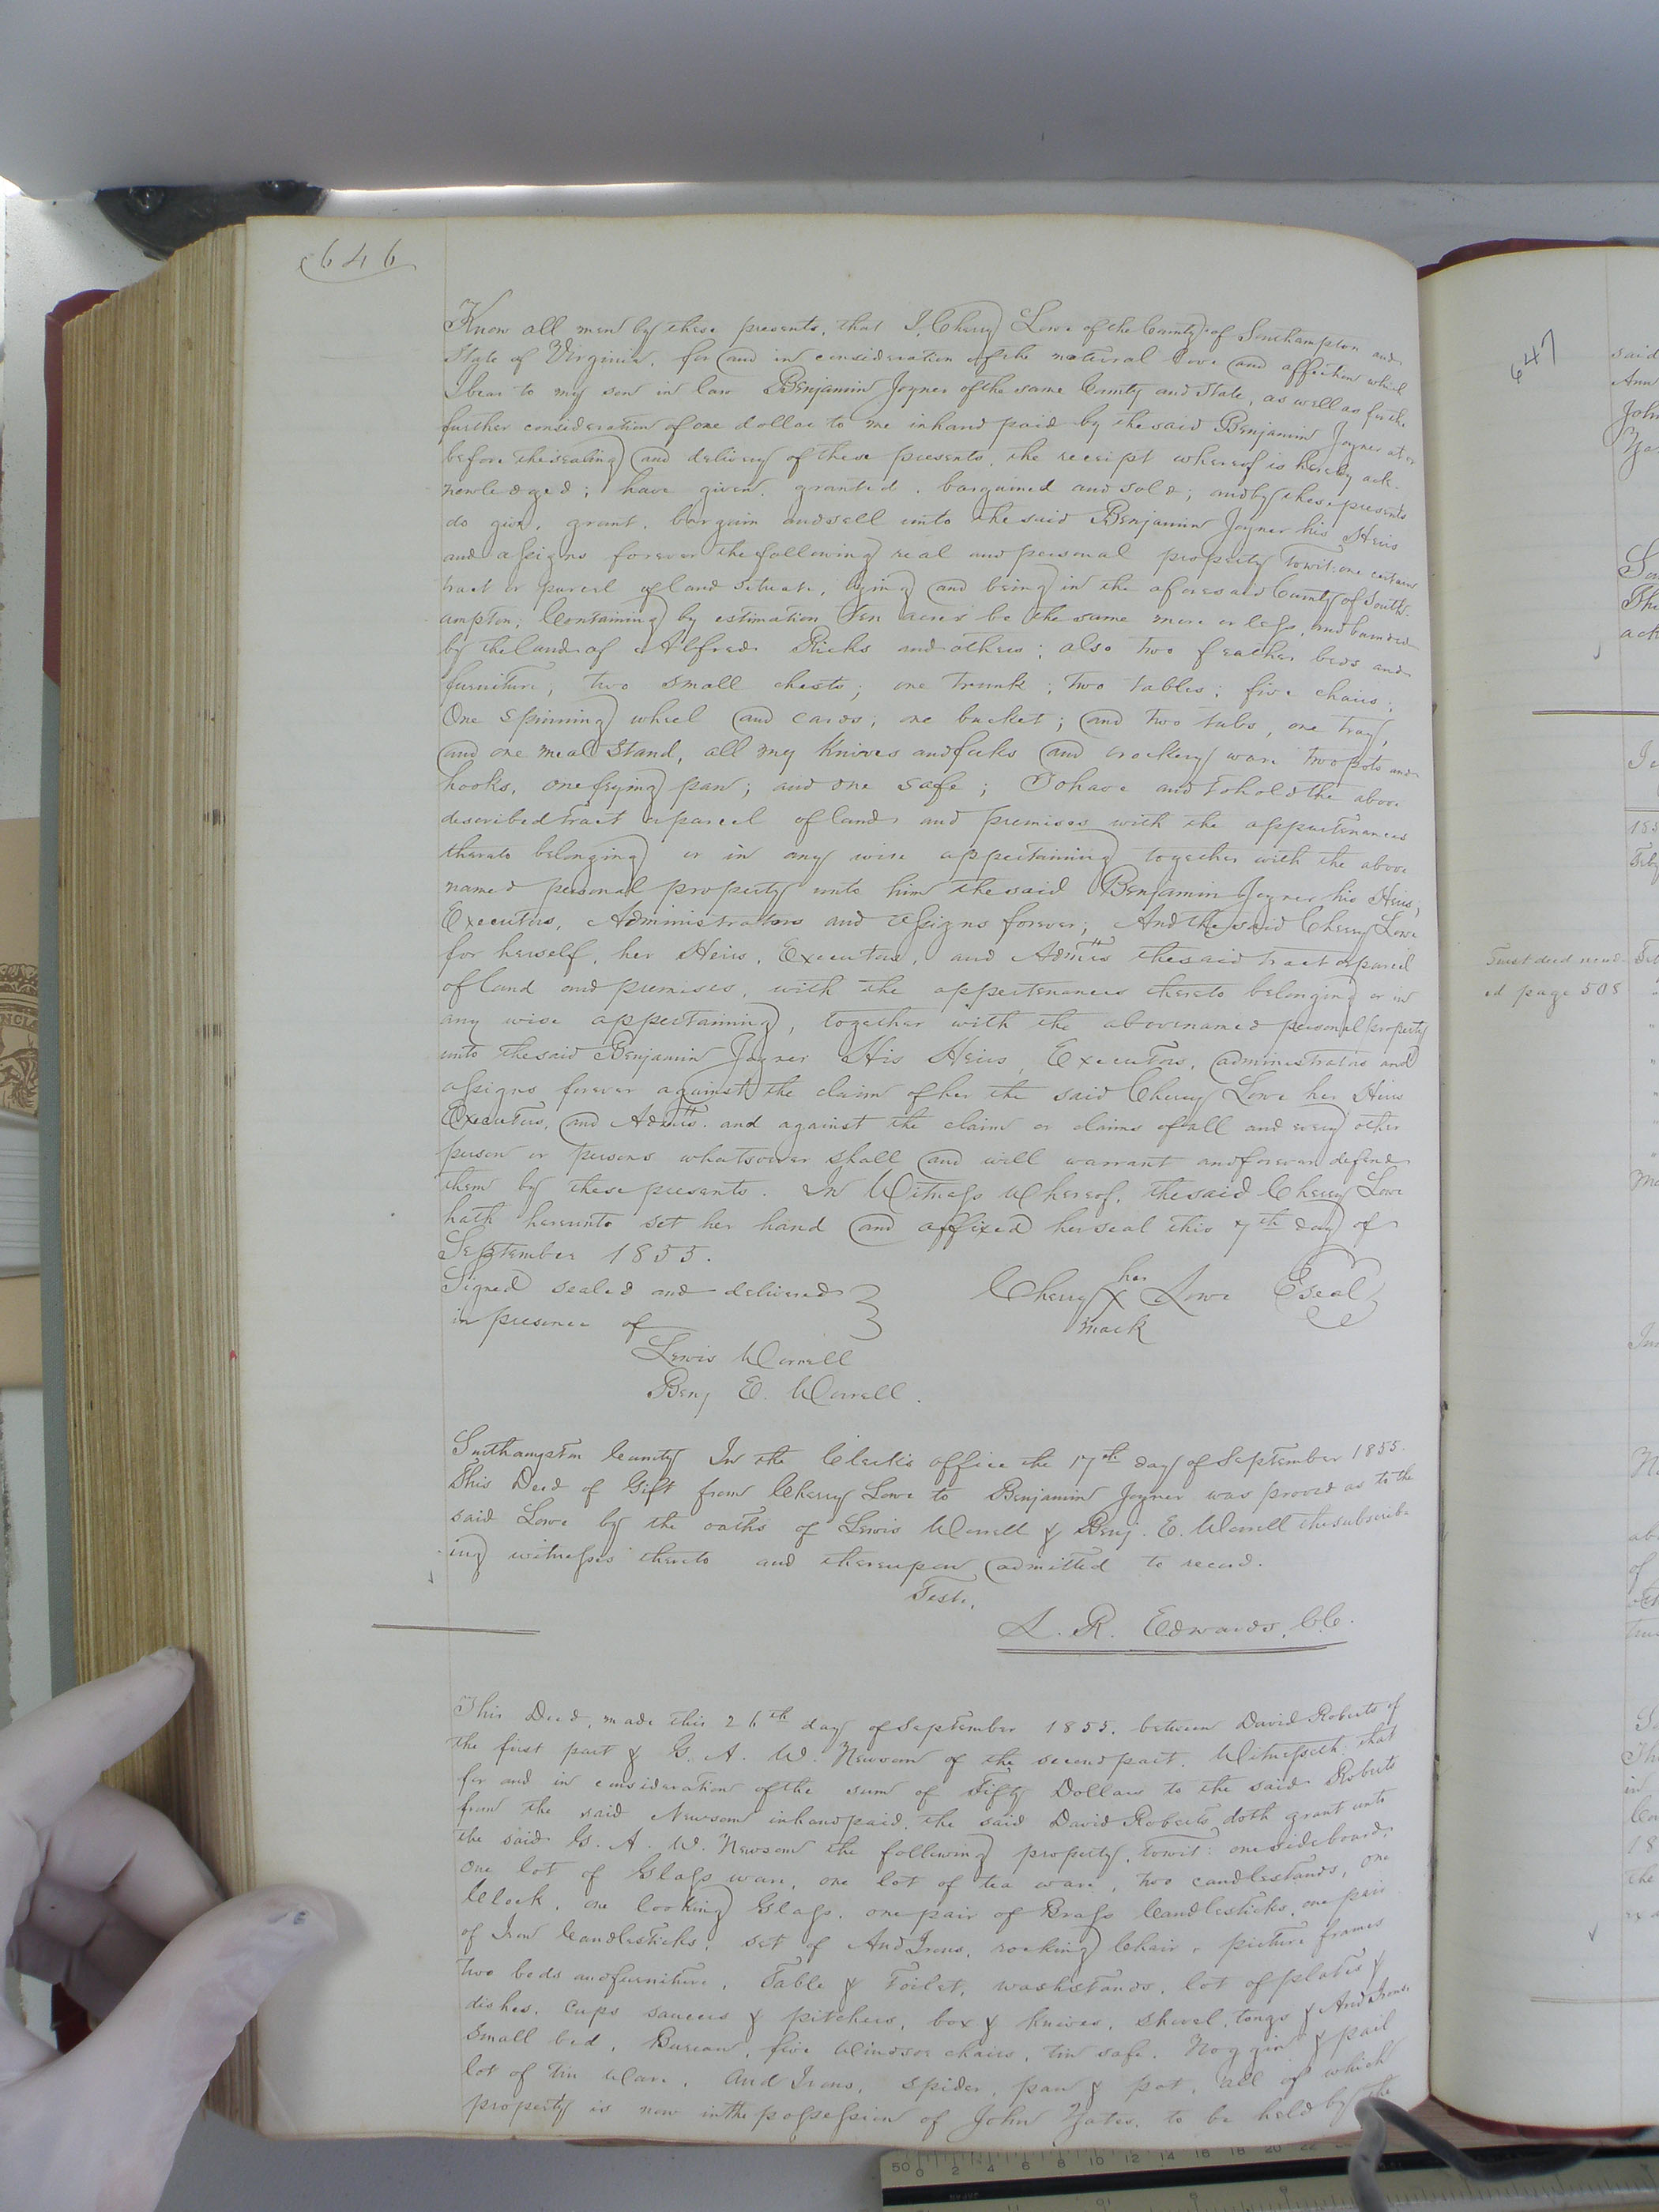 646
Know all men by these presents, that I, Cherry Lowe of the County of Southampton and
State of Virginia, for and in consideration of the natural Love and affection which
I bear to my son in law Benjamin Joyner of the same County and State, as well as for the
further consideration of one dollar to me in hand paid by the said Benjamin Joyner at or
before the sealing and delivery of these presents, the receipt whereof is hereby ack-
nowledged; have given, granted, bargained and sold; and by these presents
do give, grant, bargain and sell unto the said Benjamin Joyner his Heirs
and assigns forever the following real and personal property Towit: one certain
tract or parcel of land situate, lying and being in the aforesaid County of South-
ampton, Containing by estimation Ten acres be the same more or less, and bounded
by the land of Alfred Ricks and others; also two feather beds and
furniture, two small chests; one trunk; two tables; five chairs;
One spinning wheel and cards; one bucket; and two tubs, one tray,
and one meal stand, all my Knives and forks and crockery ware two pots and
hooks, one frying pan; and one safe; To have and to hold the above
described tract or parcel of land and premises with the appurtenances
thereto belonging or in any wise appertaining together with the above
named personal property unto him the said Benjamin Joyner his Heirs,
Executors, Administrators and assigns forever; And the said Cherry Lowe
for herself, her Heirs, Executors, and Admrs the said tract or parcel
of land and premises, with the appertenances thereto belonging or in
any wise appertaining, together with the above named personal property
unto the said Benjamin Joyner His Heirs, Executors, administrators and
assigns forever against the claim of her the said Cherry Lowe her Heirs
Executors, and Admrs. and against the claim or claims of all and every other
person or persons whatsoever shall and will warrant and forever defend
them by these presents. In Witness Whereof, the said Cherry Lowe
hath hereunto set her hand and affixed her seal this 7th day of
September 1855.
Signed sealed and delivered
in presence of
Cherry her X mark Lowe seal
Lewis Worrell
Benj E. Worrell.
Southampton County In the Clerk's office the 17th day of September 1855.
This Deed of Gift from Cherry Lowe to Benjamin Joyner was proved as to the
said Lowe by the oaths of Lewis Worrell & Benj. E. Worrell the subscrib-
ing witnesses thereto and thereupon admitted to record.
Teste,
L. R. Edwards, C.C.
This Deed, made this 26th day of September 1855. between David Roberts of
the first part & G. A. W. Newsom of the second part. Witnesseth: that
for and in consideration of the sum of Fifty Dollars to the said Roberts
from the said Newsom in hand paid, the said David Roberts doth grant unto
the said G. A. W. Newsom the following property, towit: one sideboard,
one lot of Glass ware, one lot of tea ware, two candlestands, one
Clock, one looking Glass, one pair of Brass Candlesticks, one pair
of Iron Candlesticks, set of And Irons, rocking Chair, picture frames
two beds and furniture, Table & Toilet, washstands, lot of plates &
dishes, cups saucers & pitchers, box & knives, shovel, tongs & And Irons
small bed, Bureau, five Windsor chairs, tin safe, Noggin & pail
lot of tin Ware, And Irons, spider, pan & pot, all of which
property is now in the possession of John Yates, to be held by the
647
said
Ann
John
Trust deed
ed page 508